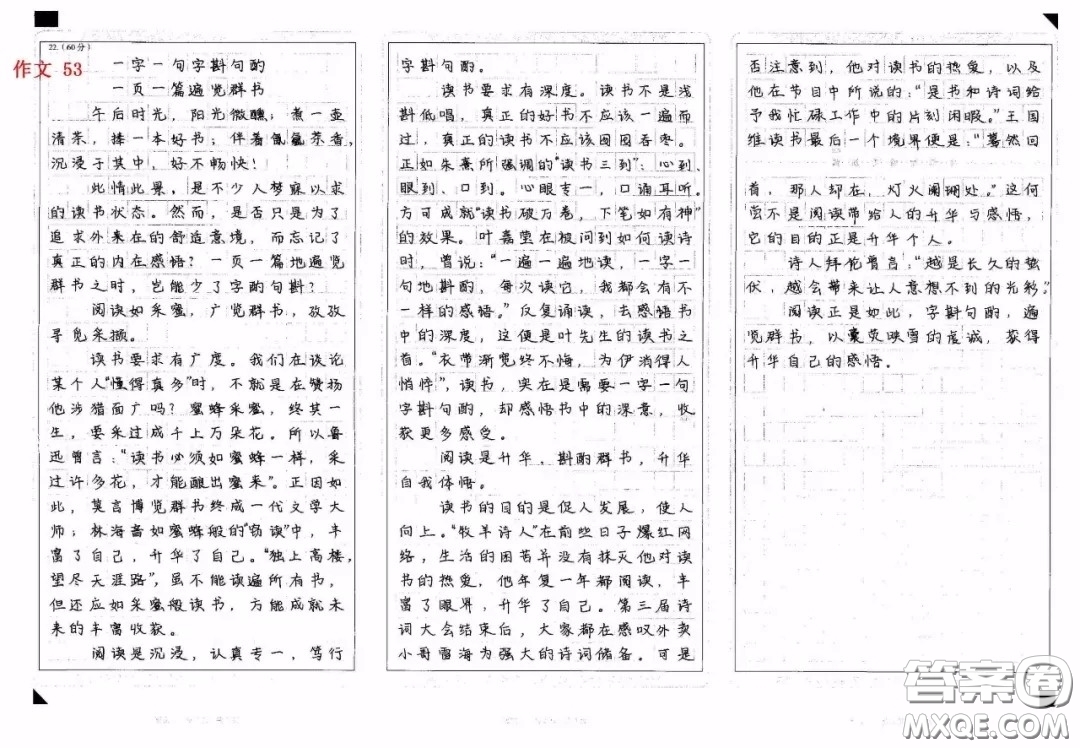 22.（60分）
作文 53
一字一句字斟句酌
一页一篇遍览群书
午后时光，阳光微醺；煮一壶
清茶，捧一本好书；伴着氤氲茶香，
沉浸于其中，好不畅快！
此情此景，是不少人梦寐以求
的读书状态。然而，是否只是为了
追求外来在的舒适意境，而忘记了
真正的内在感悟？一页一篇地遍览
群书之时，岂能少了字酌句斟？
阅读如采蜜，广览群书，孜孜
寻觅采撷。
读书要求有广度。我们在谈论
某个人“懂得真多”时，不就是在赞扬
他涉猎面广吗？蜜蜂采蜜，终其一
生，要采过成千上万朵花。所以鲁
迅曾言：“读书必须如蜜蜂一样，采
过许多花，才能酿出蜜来”。正因如
此，莫言博览群书终成一代文学大
师；林海音如蜜蜂般的“窃读”中，丰
富了自己，升华了自己。“独上高楼，
望尽天涯路”，虽不能读遍所有书，
但还应如采蜜般读书，方能成就未
来的丰富收获。
阅读是沉浸，认真专一，笃行
字斟句酌。
读书要求有深度。读书不是浅
斟低唱，真正的好书不应该一遍而
过，真正的读书不应该囫囵吞枣。
正如朱熹所强调的“读书三到”：心到、
眼到、口到。心眼专一，口诵耳听。
方可成就“读书破万卷，下笔如有神”
的效果。叶嘉莹在被问到如何读诗
时，曾说：“一遍一遍地读，一字一
句地斟酌，每次读它，我都会有不
一样的感悟。”反复诵读，去感悟书
中的深度，这便是叶先生的读书之
首。“衣带渐宽终不悔，为伊消得人
憔悴”，读书，实在是需要一字一句
字斟句酌，却感悟书中的深意，收
获更多感受。
阅读是升华，斟酌群书，升华
自我体悟。
读书的目的是促人发展，使人
向上。“牧羊诗人”在前些日子爆红网
络，生活的困苦并没有抹灭他对读
书的热爱，他年复一年都阅读，丰
富了眼界，升华了自己。第三届诗
词大会结束后，大家都在感叹外卖
小哥雷海为强大的诗词储备。可是
否注意到，他对读书的热爱，以及
他在节目中所说的：“是书和诗词给
予我忙碌工作中的片刻闲暇。”王国
维读书最后一个境界便是：“蓦然回
首，那人却在，灯火阑珊处。”这何
尝不是阅读带给人的升华与感悟，
它的目的正是升华个人。
诗人拜伦曾言：“越是长久的蛰
伏，越会带来让人意想不到的光彩。”
阅读正是如此，字斟句酌，遍
览群书，以囊萤映雪的虔诚，获得
升华自己的感悟。
答案圈
MXQE.COM